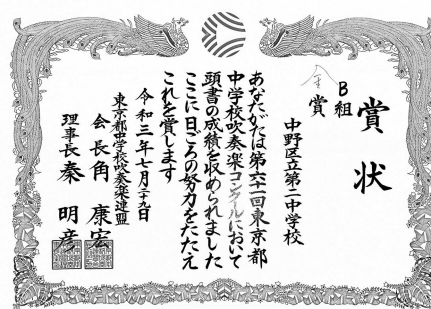 賞状
B組
金賞
中野区立第二中学校
あなたがたは第六十一回東京都
中学校吹奏楽コンクールにおいて
頭書の成績を収められました
ここに日ごろの努力をたたえ
これを賞します
令和三年七月二十九日
東京都中学校吹奏楽連盟
会長角 康宏
理事長秦 明彦